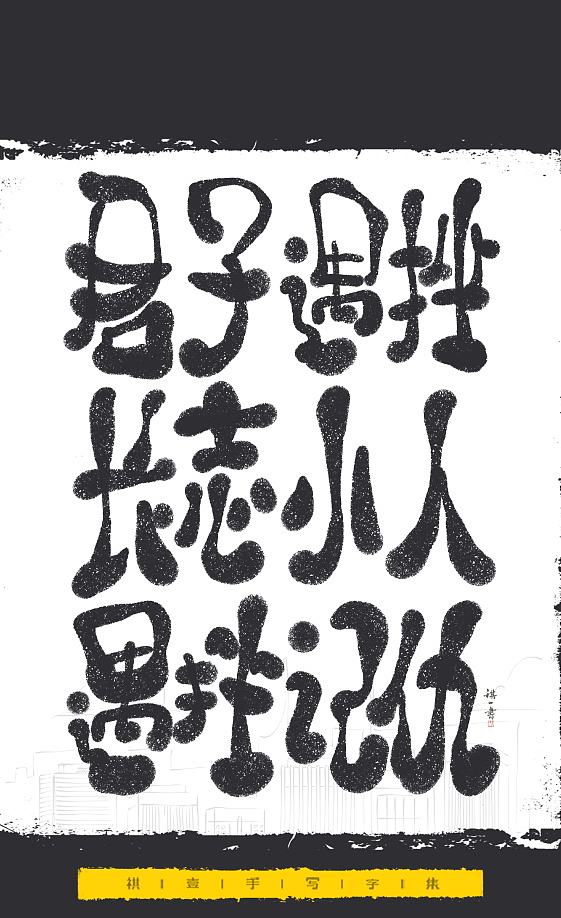 君子遇挫
长志小人
遇挫记仇
祺一書
祺|壹|手|写|字|集